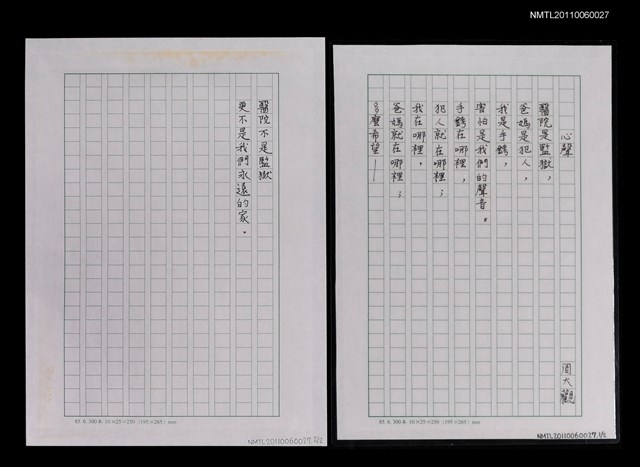 NMTL20110060027
心聲
周大觀
醫院是監獄，
爸媽是犯人，
我是手銬，
害怕是我們的聲音。
手銬在哪裡，
犯人就在哪裡；
我在哪裡，
爸媽就在哪裡；
多麼希望——
85. 6. 300本 10×25＝250 (195×265) mm
NMTL20110060027 1/2
醫院不是監獄
更不是我們永遠的家。
85. 6. 300本 10×25＝250 (195×265) mm
NMTL20110060027 2/2